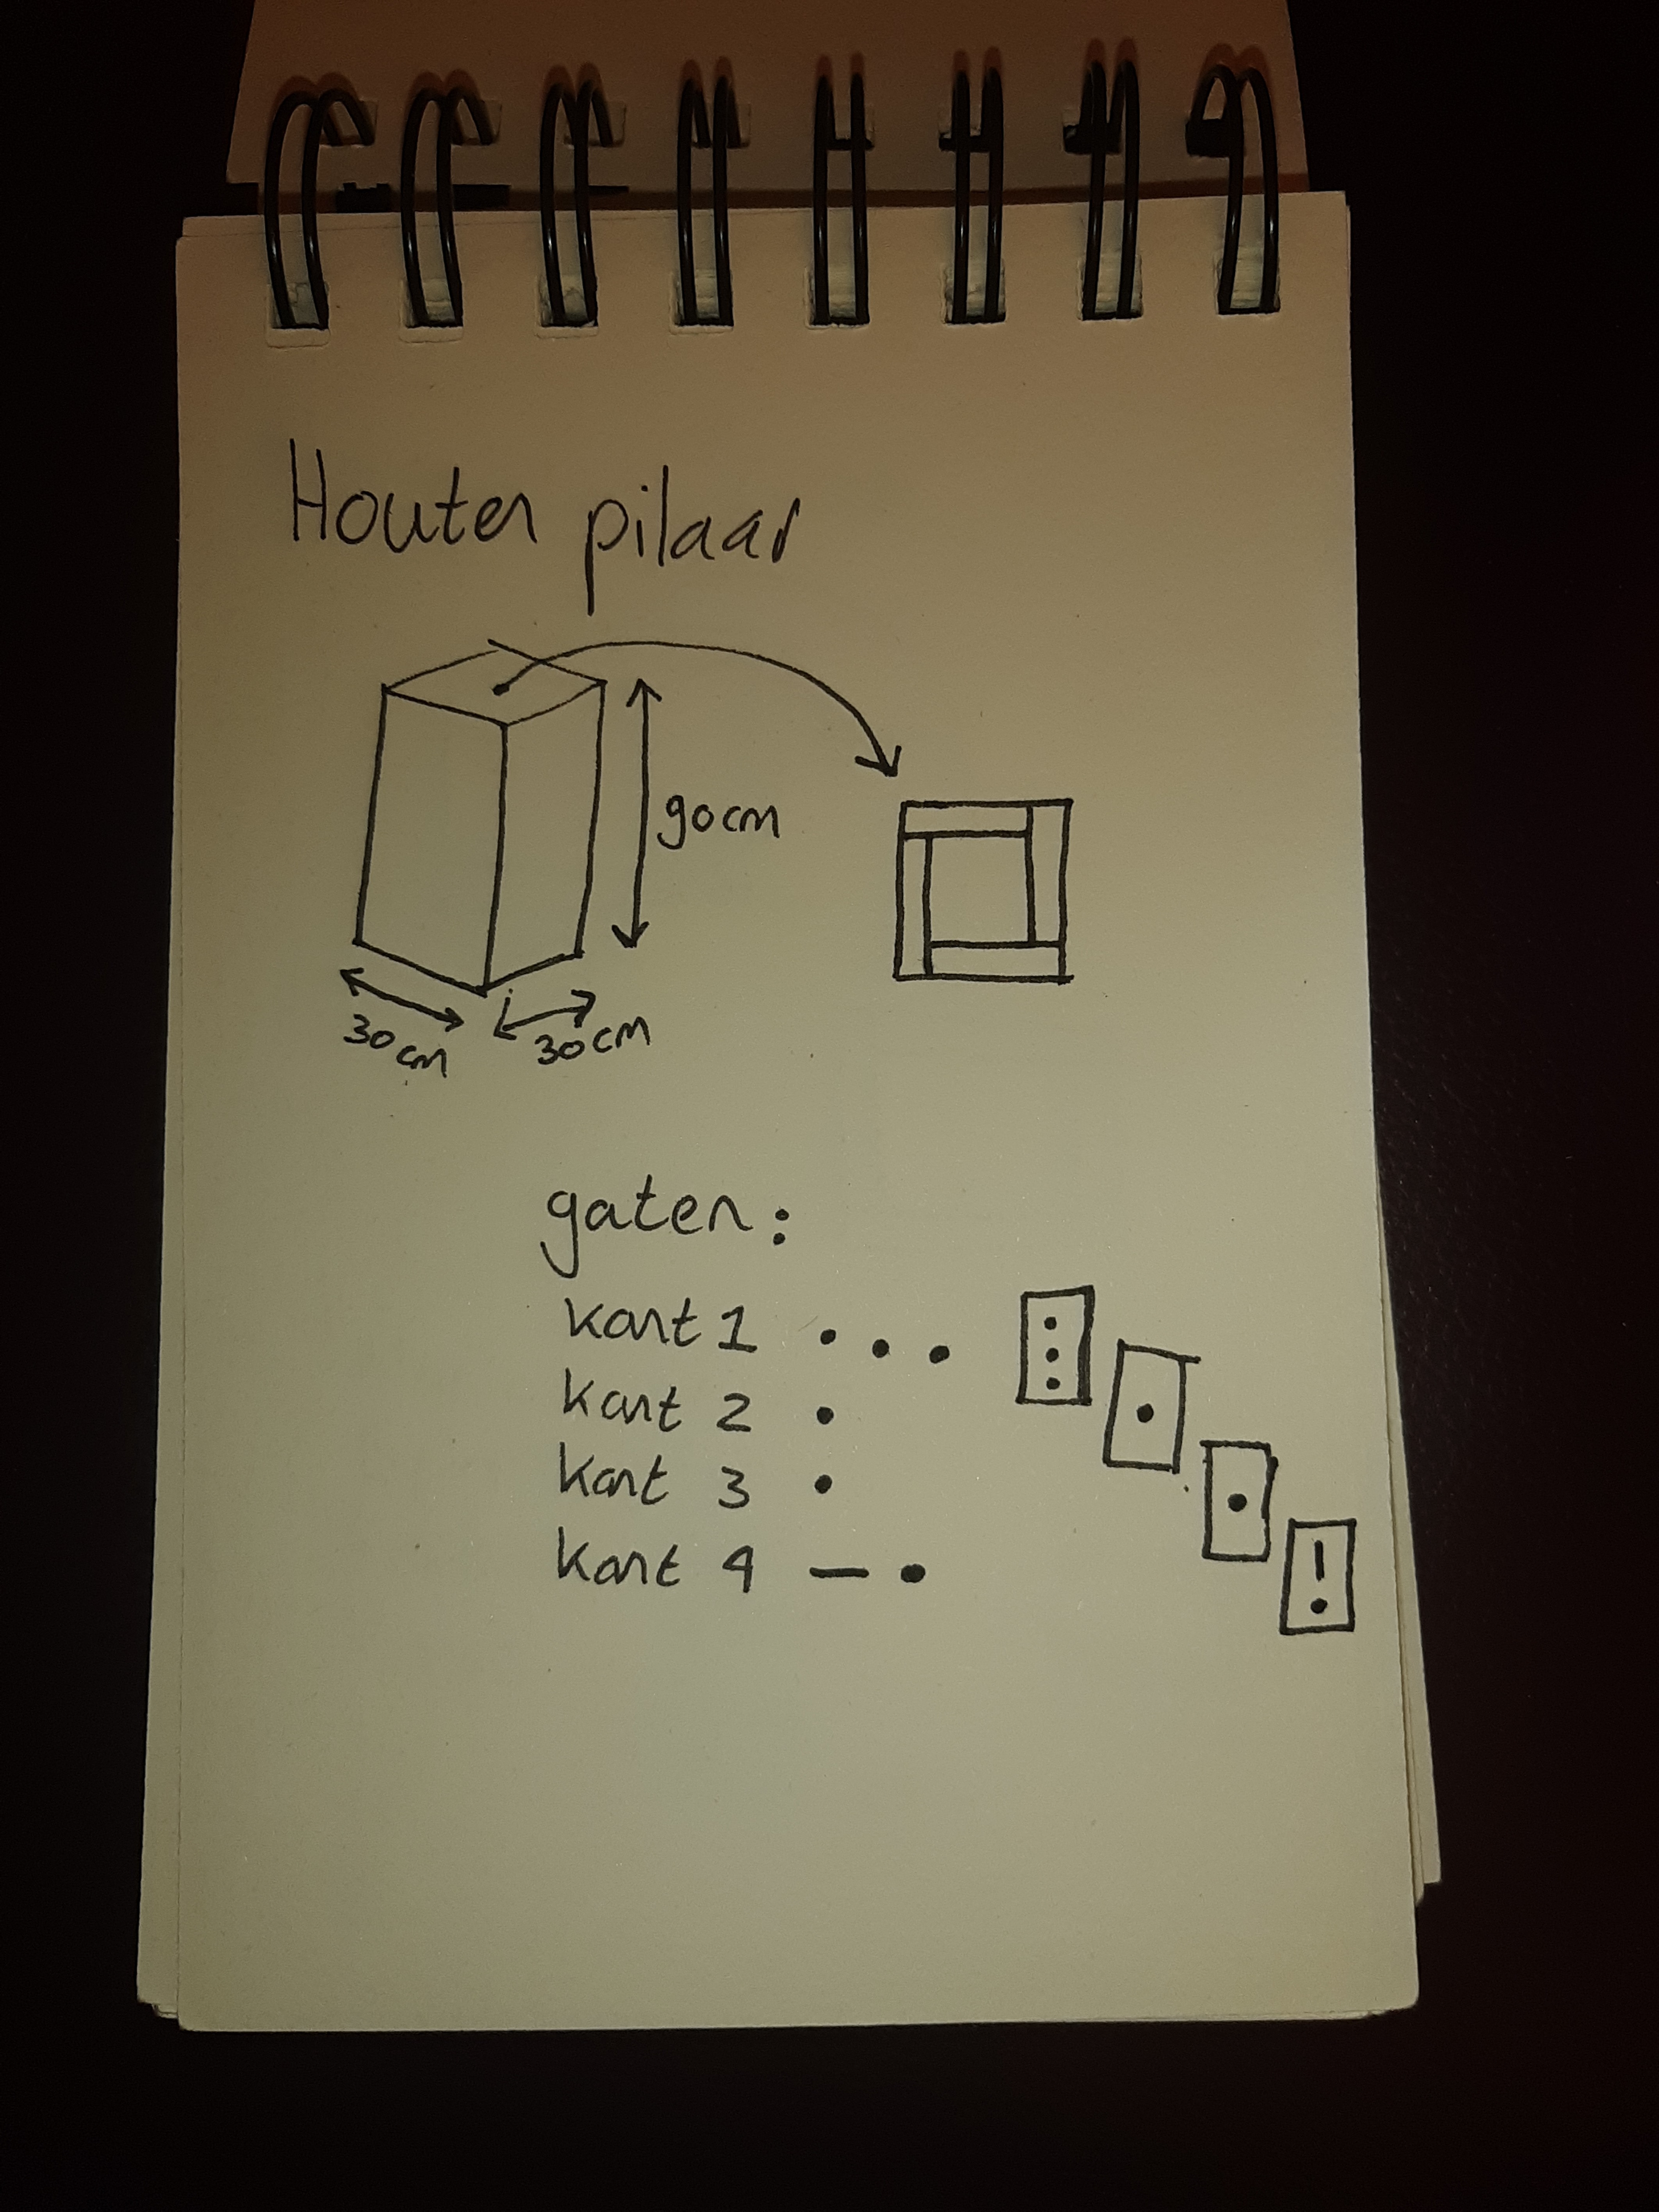 Houten pilaar
90cm
30cm
30cm
gaten:
kant 1 . . .
kant 2 .
kant 3 .
kant 4 — .